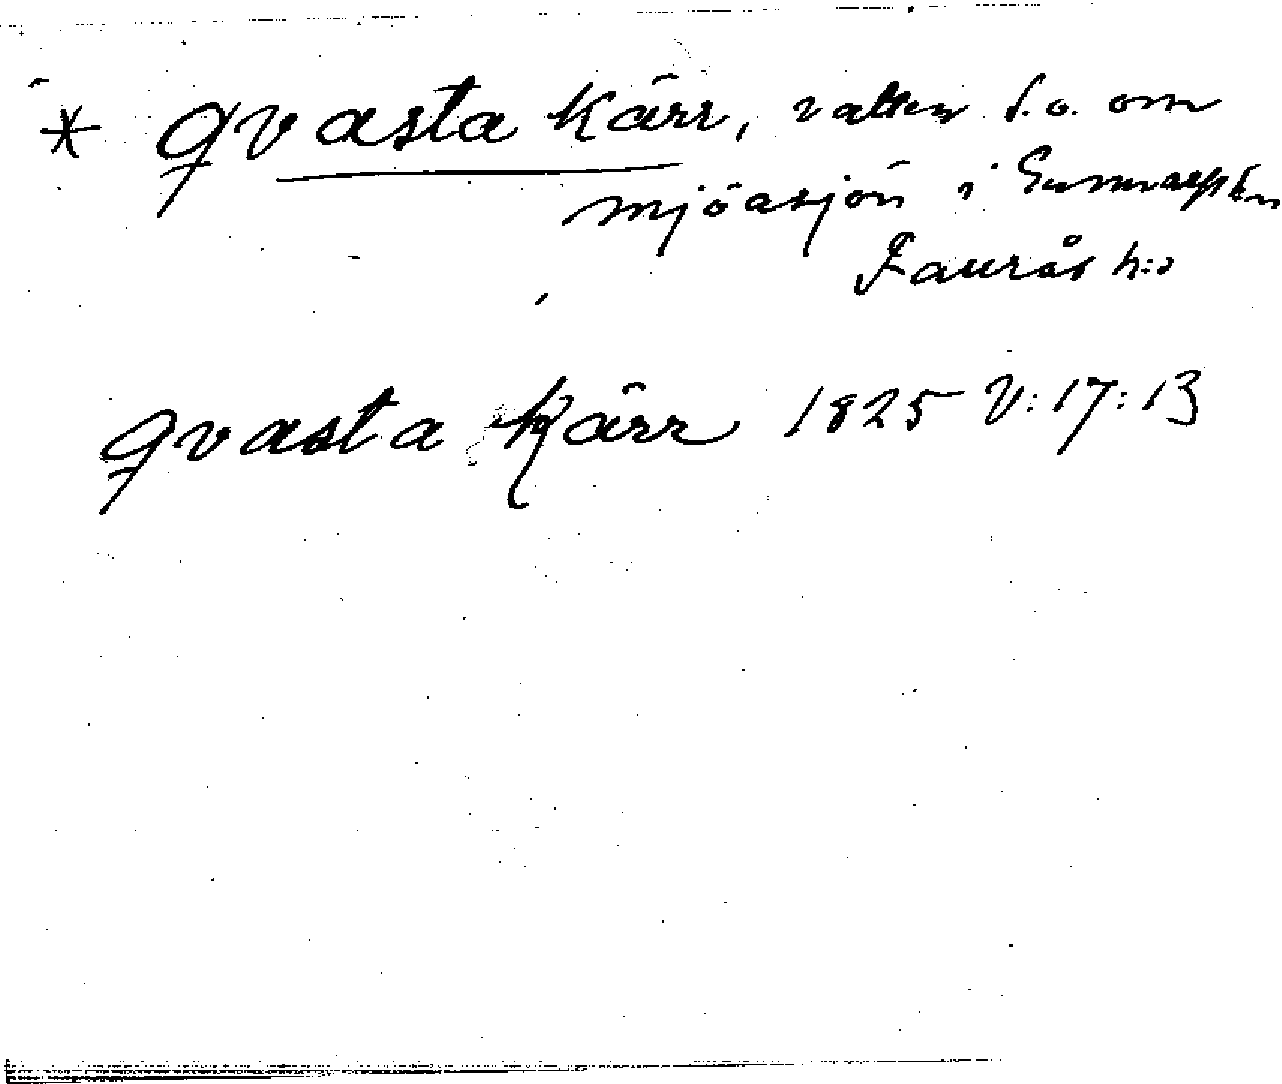 * qvasta kärr, vatten s.o. om
mjöasjön i Gunnarp sn
Faurås h:d
qvasta kjärr 1825 V:17:13